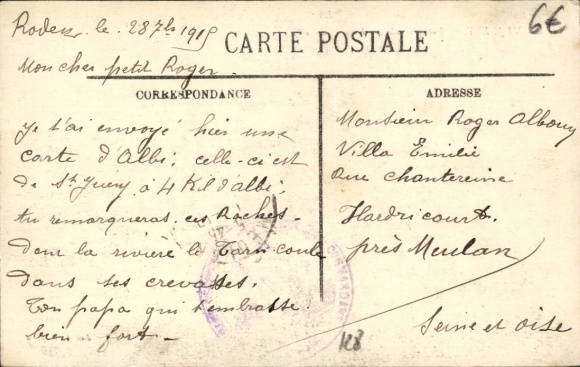 Rodez, le 28 7bre 1915
6€
CARTE POSTALE
Mon cher petit Roger.
CORRESPONDANCE
Je t'ai envoyé hier une
carte d'Albi; celle-ci est
de St Juéry à 4 Kil d'albi.
tu remarqueras ces Roches.
dont la rivière le Tarn coule
dans ses crevasses.
Ton papa qui t'embrasse
bien fort -
ADRESSE
Monsieur Roger Albouy
Villa Emilie
Rue Chantereine
Hardricourt.
près Meulan
Seine et Oise
128